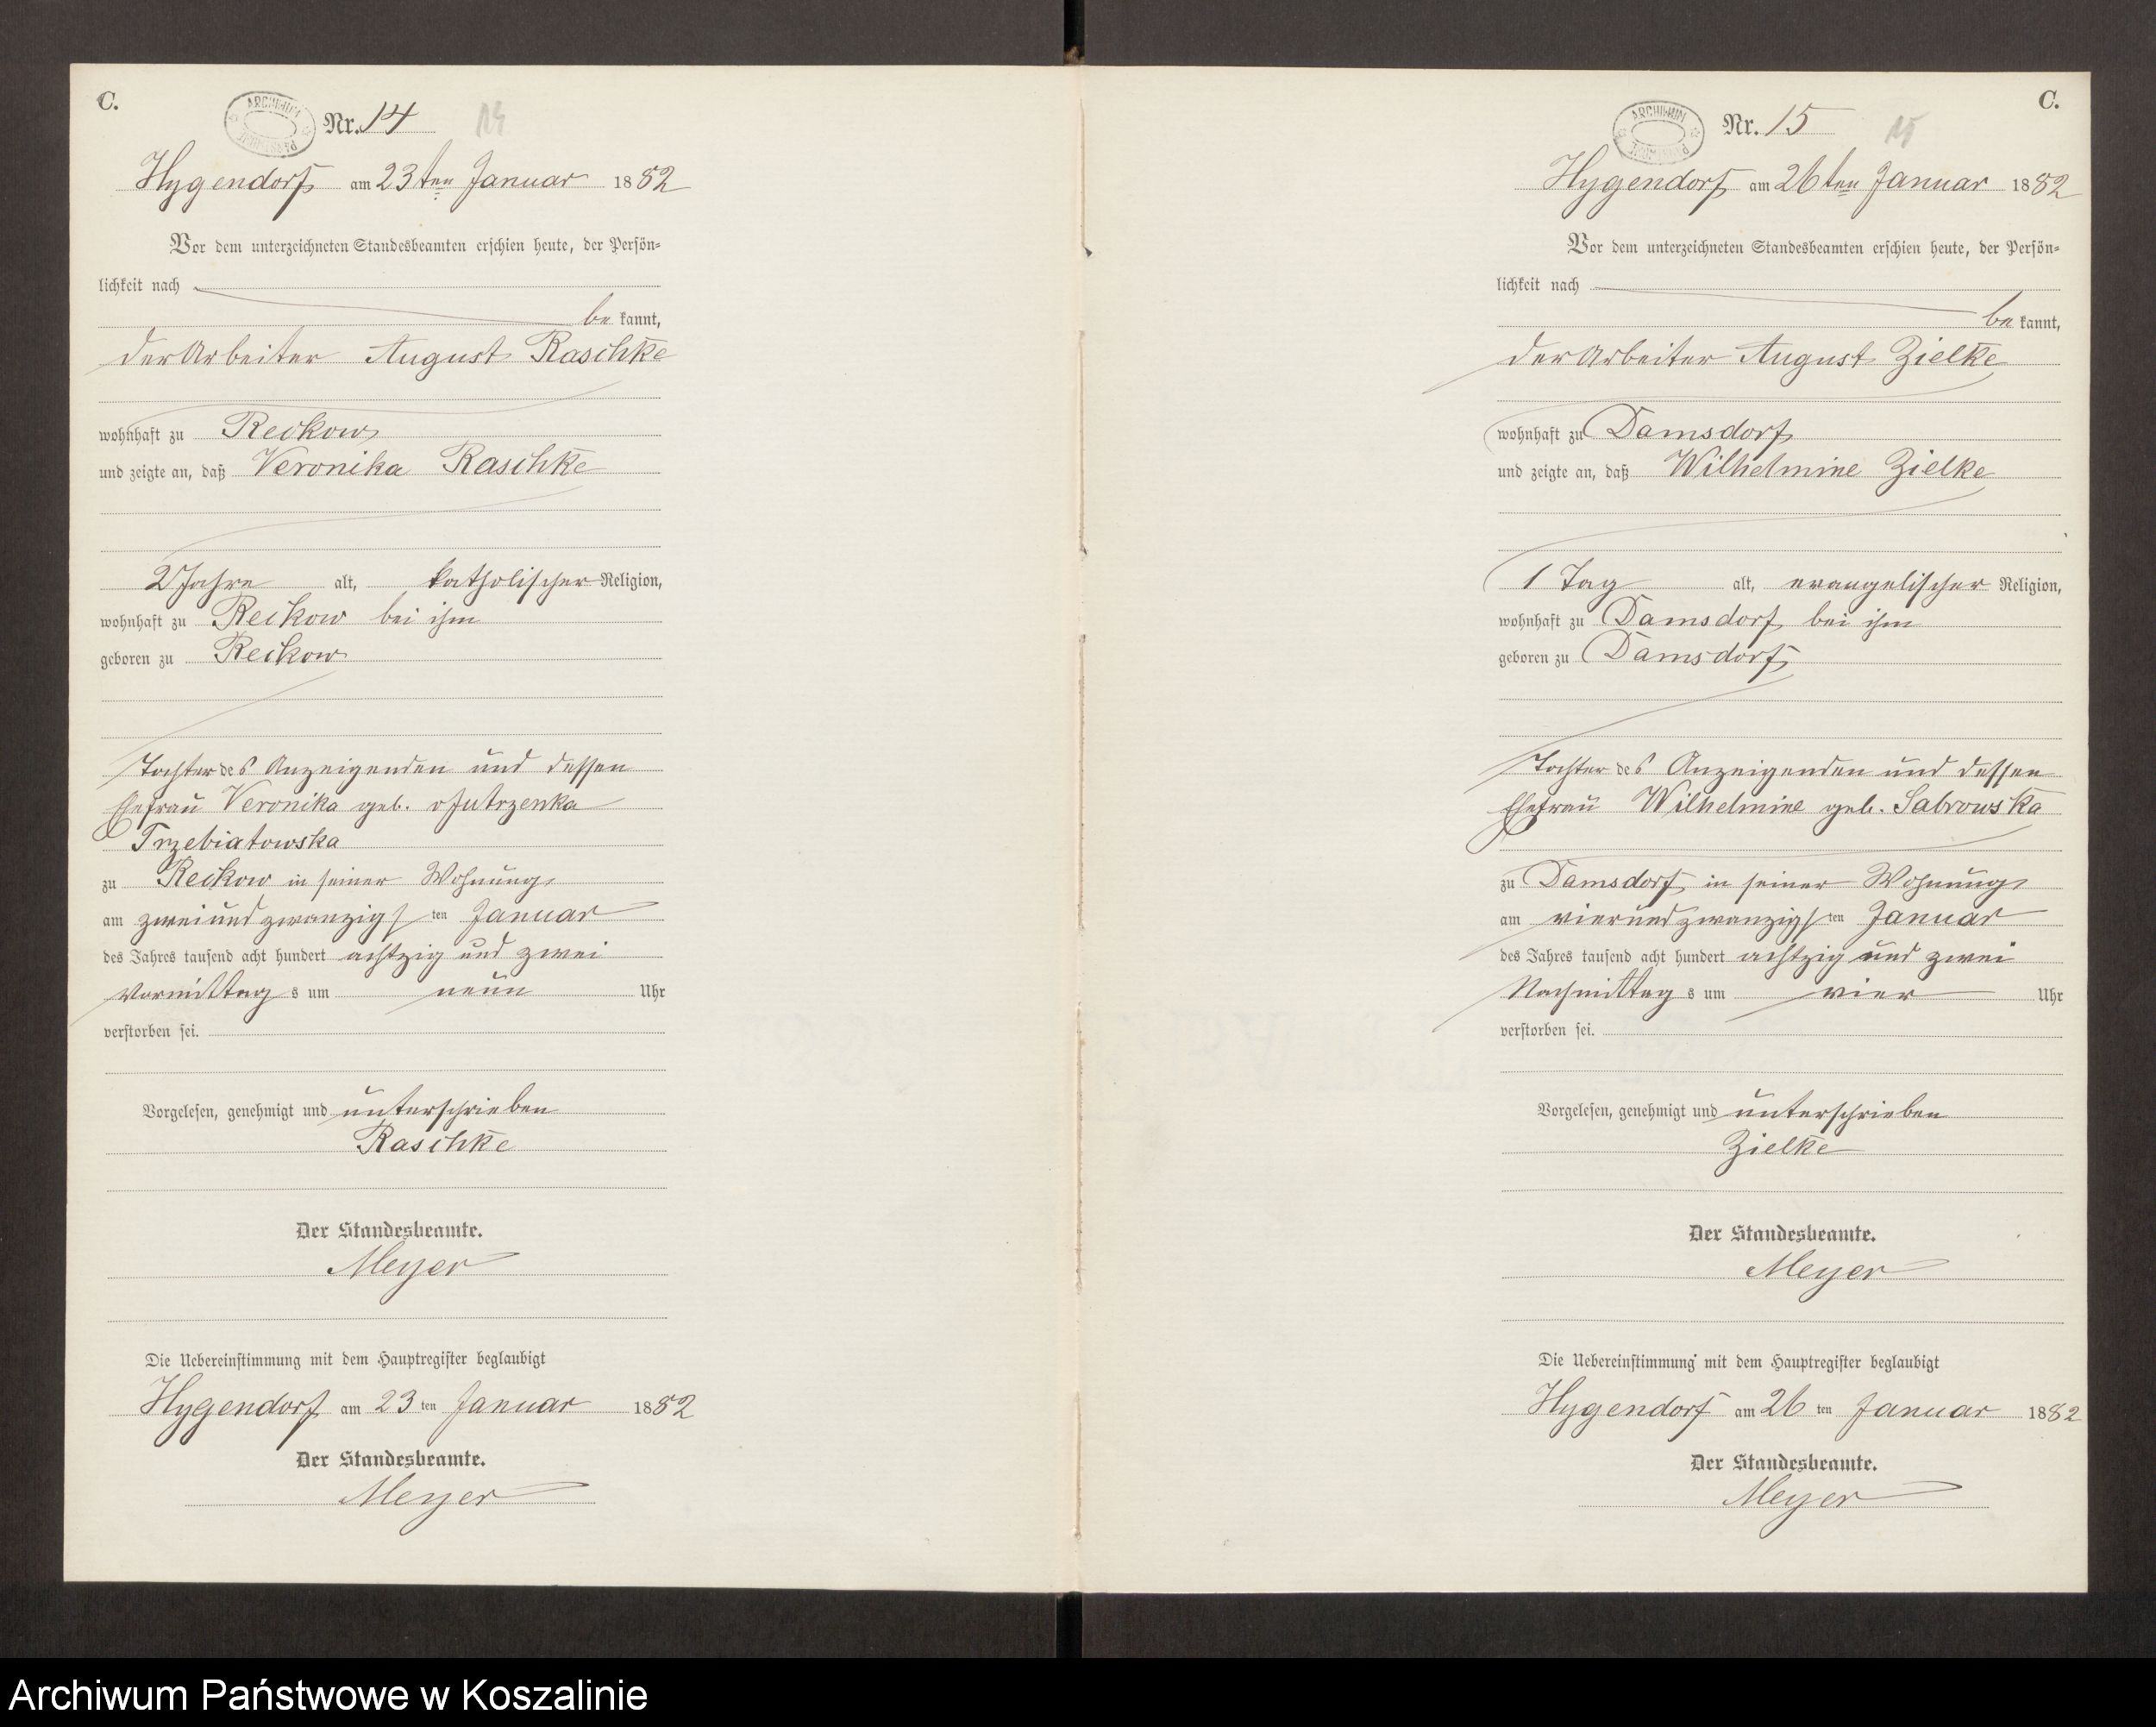 C.
ARCHIWUM PAŃSTWOWE
Nr. 14 14
Hygendorf am 23ten Januar 1882
Vor dem unterzeichneten Standesbeamten erschien heute, der Persön-
lichkeit nach
be kannt,
der Arbeiter August Raschke
wohnhaft zu Reckow
und zeigte an, daß Veronika Raschke
2 Jahre alt, katholischer Religion,
wohnhaft zu Reckow bei ihm
geboren zu Reckow
Tochter des Anzeigenden und dessen
Ehefrau Veronika geb. v Jutrzenka
Trzebiatowska
zu Reckow in seiner Wohnung
am zweiundzwanzigsten Januar
des Jahres tausend acht hundert achtzig und zwei
Vormittags um neun Uhr
verstorben sei.
Vorgelesen, genehmigt und unterschrieben
Raschke
Der Standesbeamte.
Meyer
Die Uebereinstimmung mit dem Hauptregister beglaubigt
Hygendorf am 23ten Januar 1882
Der Standesbeamte.
Meyer
C.
ARCHIWUM PAŃSTWOWE
Nr. 15 15
Hygendorf am 26ten Januar 1882
Vor dem unterzeichneten Standesbeamten erschien heute, der Persön-
lichkeit nach
be kannt,
der Arbeiter August Zielke
wohnhaft zu Damsdorf
und zeigte an, daß Wilhelmine Zielke
1 Tag alt, evangelischer Religion,
wohnhaft zu Damsdorf bei ihm
geboren zu Damsdorf
Tochter des Anzeigenden und dessen
Ehefrau Wilhelmine geb. Sabrowska
zu Damsdorf in seiner Wohnung
am vierundzwanzigsten Januar
des Jahres tausend acht hundert achtzig und zwei
Nachmittags um vier Uhr
verstorben sei.
Vorgelesen, genehmigt und unterschrieben
Zielke
Der Standesbeamte.
Meyer
Die Uebereinstimmung mit dem Hauptregister beglaubigt
Hygendorf am 26ten Januar 1882
Der Standesbeamte.
Meyer
Archiwum Państwowe w Koszalinie